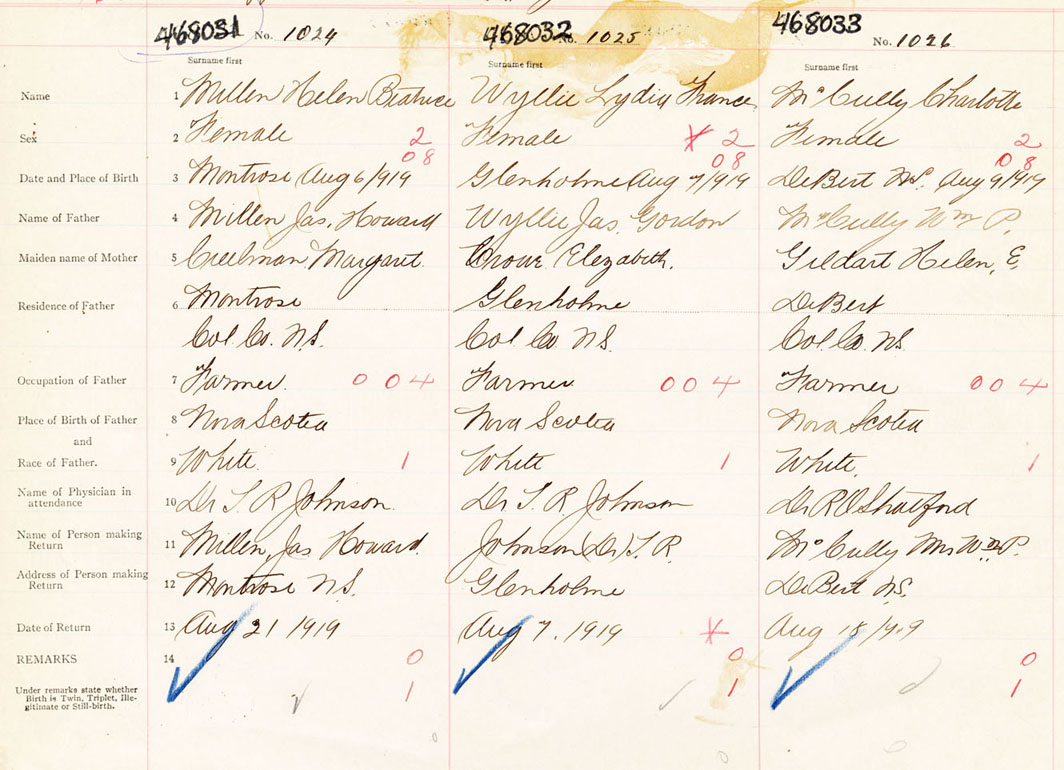 468031 No. 1024 468032 No. 1025 468033 No. 1026
Surname first Surname first Surname first
Name 1 Millen Helen Beatrice Wyllie Lydia Frances McCully Charlotte
Sex 2 Female 2 Female X 2 Female 2
08 08 08
Date and Place of Birth 3 Montrose Aug 6/1919 Glenholme Aug 7/1919 DeBert N.S. Aug 9/1919
Name of Father 4 Millen Jas. Howard Wyllie Jas. Gordon McCully Wm P.
Maiden name of Mother 5 Creelman Margaret. Crowe Elezabeth. Geldart Helen, E.
Residence of Father 6 Montrose Glenholme DeBert
Col Co. N.S. Col Co N.S. Col. Co. N.S.
Occupation of Father 7 Farmer. 004 Farmer 004 Farmer 004
Place of Birth of Father 8 Nova Scotia Nova Scotia Nova Scotia
and
Race of Father. 9 White. 1 White 1 White. 1
Name of Physician in
attendance 10 Dr T. R Johnson. Dr T. R. Johnson Dr R O Shatford
Name of Person making
Return 11 Millen, Jas Howard. Johnson (Dr) T. R. McCully Mrs Wm P.
Address of Person making
Return 12 Montrose N.S. Glenholme DeBert N.S.
Date of Return 13 Aug 21 1919 Aug 7. 1919 X Aug 18 1919
REMARKS 14 0 0 0
Under remarks state whether
Birth is Twin, Triplet, Ille-
gitimate or Still-birth. 1 1 1